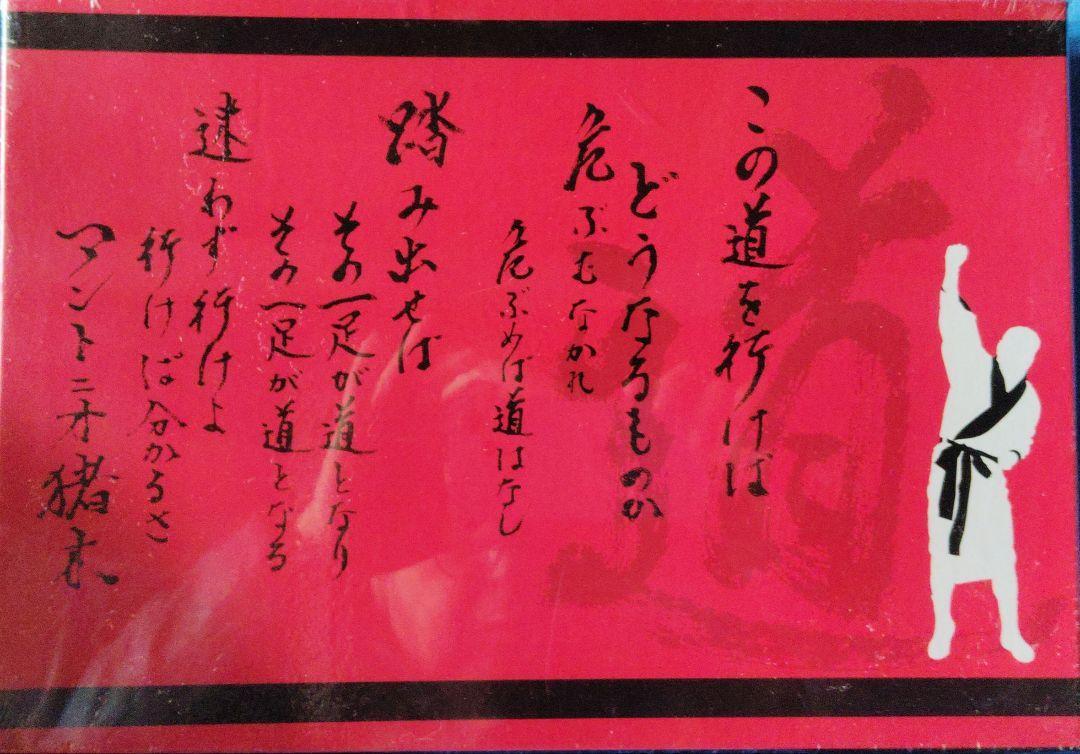 この道を行けば
どうなるものか
危ぶむなかれ
危ぶめば道はなし
踏み出せば
その一足が道となり
その一足が道となる
迷わず行けよ
行けば分かるさ
アントニオ猪木
道